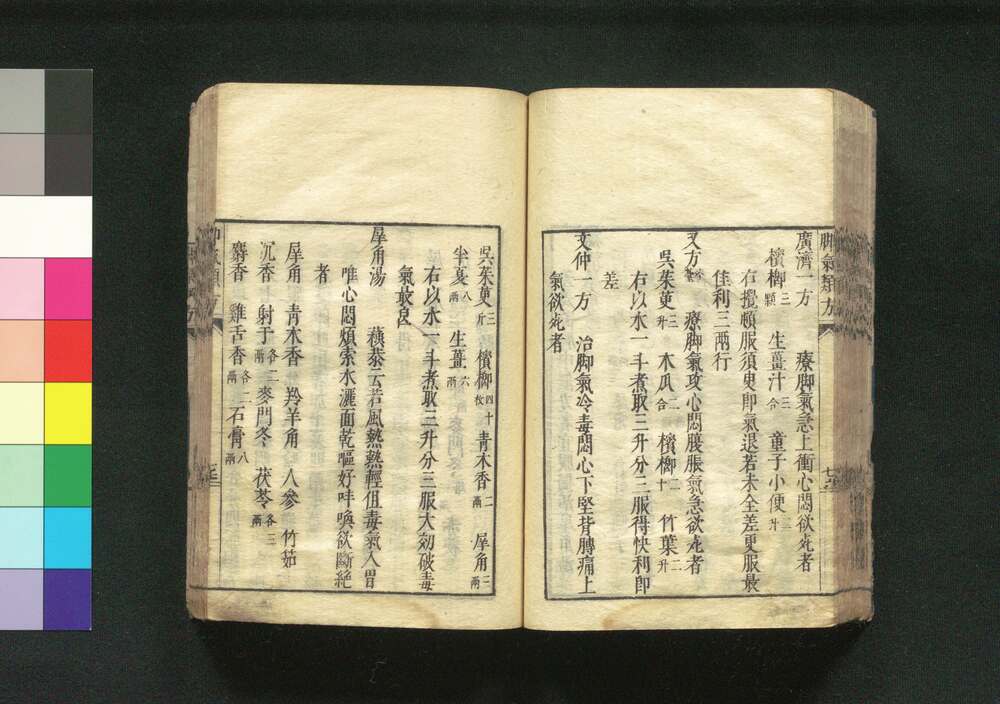 脚氣類方
廣濟一方 療脚氣急上衝心悶欲死者
檳榔三顆 生薑汁三合 童子小便二升
右攪頓服須臾即氣退若未全差更服最
佳利三兩行
又方 療脚氣攻心悶腹脹氣急欲死者
呉茱萸三升 木瓜二合 檳榔二十 竹葉二升
右以水一斗煮取三升分三服得快利即
差
文仲一方 治脚氣冷毒悶心下堅背膊痛上
氣欲死者
呉茱萸三升 檳榔四十枚 青木香二兩 犀角三兩
半夏八兩 生薑六兩
右以水一斗煮取三升分三服大効破毒
氣最良
犀角湯 蘓恭云若風熱熱輕但毒氣入胃
唯心悶煩索水灑面乾嘔好呌喚欲斷絶
者
犀角 青木香 羚羊角 人參 竹茹
沉香 射干各二兩 麥門冬 茯苓各三兩
麝香 雞舌香各二兩 石膏八兩